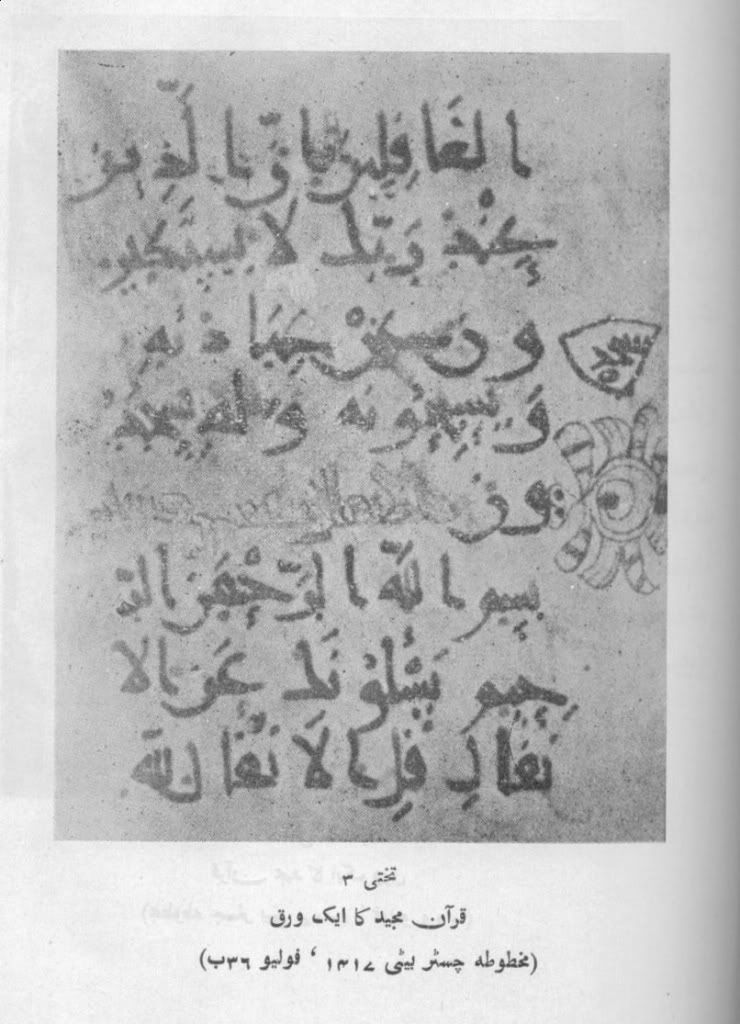 ا لغَافِلِينَ اِنَّ ا لَّذِ ين
عِنْدَ رَبِّكَ لا يَستَكبِر
ون عَنْ عِبَا دَتِهِ
سجدة
وَيُسَبِّحُونَه وَلَهُ يَسْجُد
ون
بِسمِ ا للهِ ا لرَّحْمَنِ ا لرَّ
حِيمِ يَسْئَلُونَكَ عَنِ ا لا
نفَا لِ قُلِ ا لاَ نفَا ل لله
تختی ۳
قرآن مجید کا ایک ورق
(مخطوطہ چسٹر بیٹی ۱۴۱۷ ، فولیو ۳۶ب)